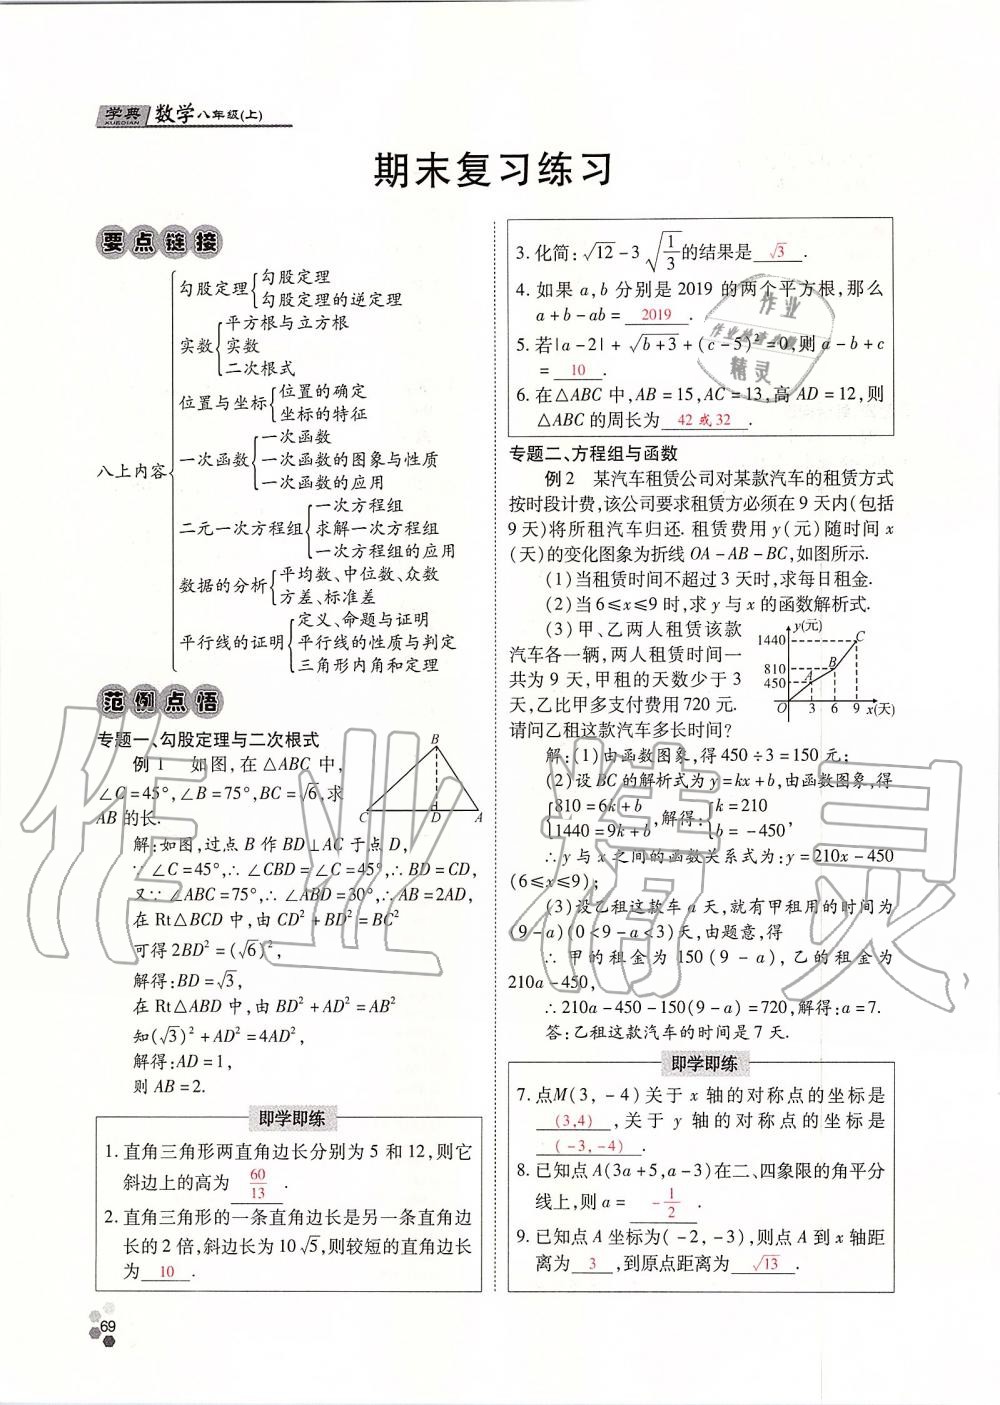 学典 数学八年级(上)
XUEDIAN
期末复习练习
要点链接
八上内容
勾股定理
勾股定理
勾股定理的逆定理
实数
平方根与立方根
实数
二次根式
位置与坐标
位置的确定
坐标的特征
一次函数
一次函数
一次函数的图象与性质
一次函数的应用
二元一次方程组
一次方程组
求解一次方程组
一次方程组的应用
数据的分析
平均数、中位数、众数
方差、标准差
平行线的证明
定义、命题与证明
平行线的性质与判定
三角形内角和定理
范例点悟
专题一、勾股定理与二次根式
例1 如图,在△ABC中,
∠C=45°,∠B=75°,BC=√6,求
AB的长.
B
C D A
解:如图,过点B作BD⊥AC于点D,
∵∠C=45°,∴∠CBD=∠C=45°,∴BD=CD,
又∵∠ABC=75°,∴∠ABD=30°,∴AB=2AD,
在Rt△BCD中,由CD²+BD²=BC²
可得2BD²=(√6)²,
解得:BD=√3,
在Rt△ABD中,由BD²+AD²=AB²
知(√3)²+AD²=4AD²,
解得:AD=1,
则AB=2.
即学即练
1. 直角三角形两直角边长分别为5和12,则它
斜边上的高为 60/13 .
2. 直角三角形的一条直角边长是另一条直角边
长的2倍,斜边长为10√5,则较短的直角边长
为 10 .
3. 化简:√12-3√(1/3)的结果是 √3 .
4. 如果a,b分别是2019的两个平方根,那么
a+b-ab= 2019 .
5. 若|a-2|+√(b+3)+(c-5)²=0,则a-b+c
= 10 .
6. 在△ABC中,AB=15,AC=13,高AD=12,则
△ABC的周长为 42或32 .
专题二、方程组与函数
例2 某汽车租赁公司对某款汽车的租赁方式
按时段计费,该公司要求租赁方必须在9天内(包括
9天)将所租汽车归还. 租赁费用y(元)随时间x
(天)的变化图象为折线OA-AB-BC,如图所示.
(1)当租赁时间不超过3天时,求每日租金.
(2)当6≤x≤9时,求y与x的函数解析式.
(3)甲、乙两人租赁该款
汽车各一辆,两人租赁时间一
共为9天,甲租的天数少于3
天,乙比甲多支付费用720元.
请问乙租这款汽车多长时间?
y(元)
1440 C
810 B
450 A
O 3 6 9 x(天)
解:(1)由函数图象,得450÷3=150元;
(2)设BC的解析式为y=kx+b,由函数图象,得
{810=6k+b
1440=9k+b,解得:{k=210
b=-450,
∴y与x之间的函数关系式为:y=210x-450
(6≤x≤9);
(3)设乙租这款车a天,就有甲租用的时间为
(9-a)(0<9-a<3)天,由题意,得
∴甲的租金为150(9-a),乙的租金为
210a-450,
∴210a-450-150(9-a)=720,解得:a=7.
答:乙租这款汽车的时间是7天.
即学即练
7. 点M(3,-4)关于x轴的对称点的坐标是
(3,4) ,关于y轴的对称点的坐标是
(-3,-4) .
8. 已知点A(3a+5,a-3)在二、四象限的角平分
线上,则a= -1/2 .
9. 已知点A坐标为(-2,-3),则点A到x轴距
离为 3 ,到原点距离为 √13 .
69
作业精灵